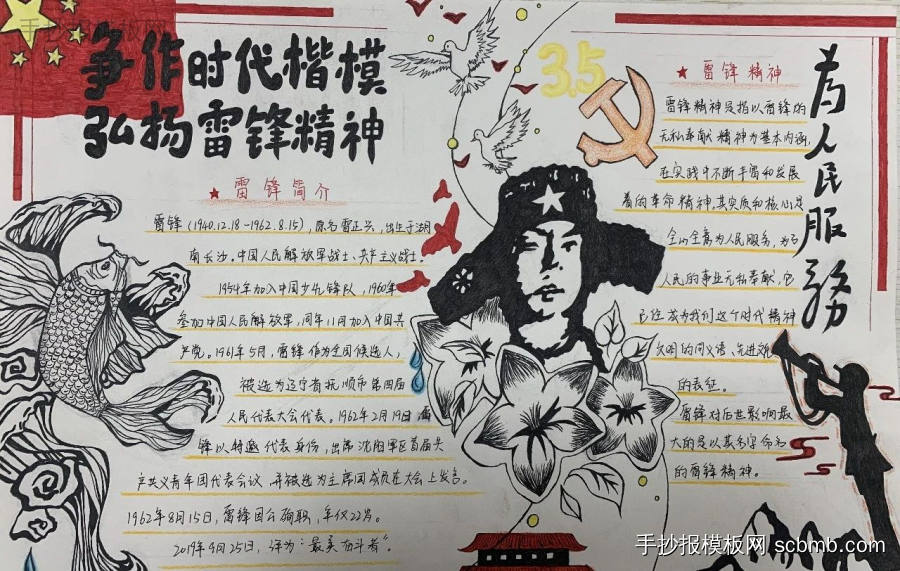 手抄报模板网
争作时代楷模
弘扬雷锋精神
3.5
雷锋简介
雷锋(1940.12.18-1962.8.15),原名雷正兴,出生于湖
南长沙。中国人民解放军战士、共产主义战士。
1954年加入中国少先锋队,1960年
参加中国人民解放军,同年11月加入中国共
产党。1961年5月,雷锋作为全国候选人,
被选为辽宁省抚顺市第四届
人民代表大会代表。1962年2月19日
锋以特邀代表身份,出席沈阳军区首届共
产共义青年团代表会议,并被选为主席团成员在大会上发言。
1962年8月15日,雷锋因公殉职,年仅22岁。
2019年9月25日,评为"最美奋斗者"。
雷锋精神
雷锋精神是指以雷锋的
无私奉献精神为基本内涵,
在实践中不断丰富和发展
着的革命精神,其实质和核心是
全心全意为人民服务,为了
人民的事业无私奉献,它
已经成为我们这个时代精神
文明的同义语、先进文
的表征。
雷锋对后世影响最
大的是以其名字命名
的雷锋精神。
为人民服务
手抄报模板网 scbmb.com